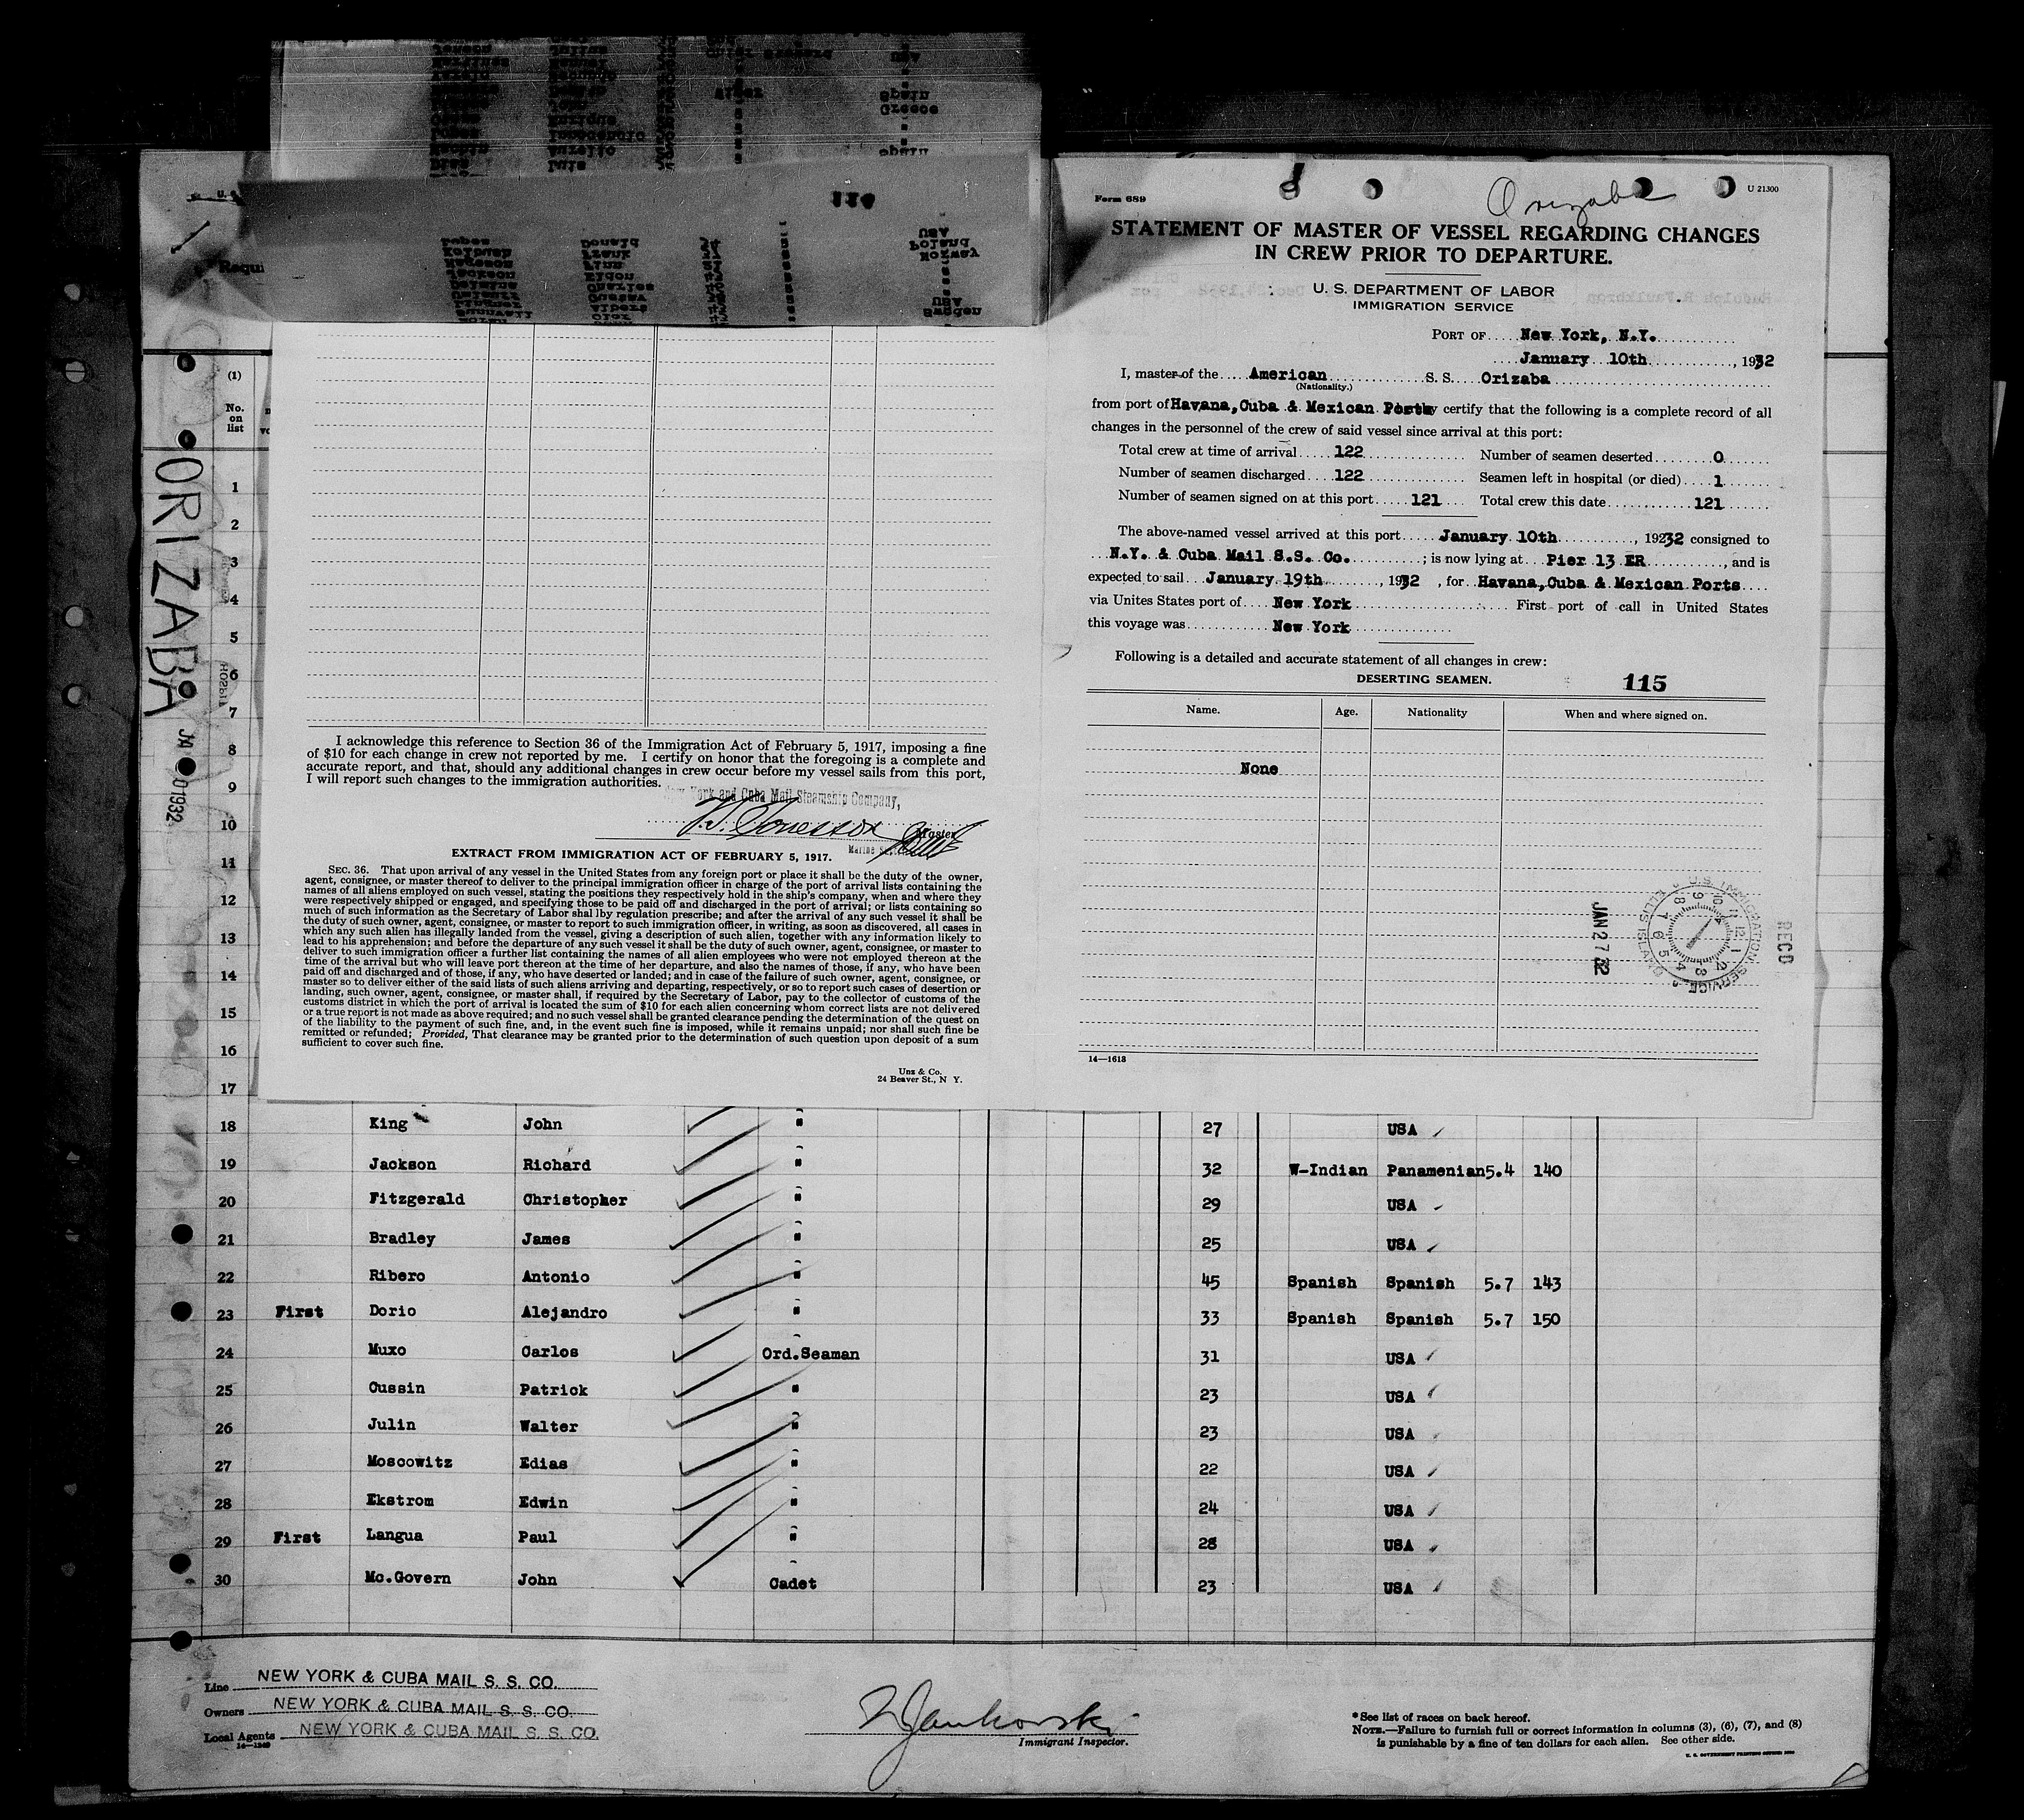 Orizaba
U 21300
Form 689
STATEMENT OF MASTER OF VESSEL REGARDING CHANGES
IN CREW PRIOR TO DEPARTURE.
U. S. DEPARTMENT OF LABOR
IMMIGRATION SERVICE
PORT OF New York, N.Y.
January 10th, 1932
I, master of the American S. S. Orizaba
(Nationality.)
from port of Havana, Cuba & Mexican Ports certify that the following is a complete record of all
changes in the personnel of the crew of said vessel since arrival at this port:
Total crew at time of arrival 122 Number of seamen deserted 0
Number of seamen discharged 122 Seamen left in hospital (or died) 1
Number of seamen signed on at this port 121 Total crew this date 121
The above-named vessel arrived at this port January 10th, 19232 consigned to
N.Y. & Cuba Mail S.S. Co. ; is now lying at Pier 13 ER, and is
expected to sail January 19th, 1932, for Havana, Cuba & Mexican Ports
via Unites States port of New York First port of call in United States
this voyage was New York
Following is a detailed and accurate statement of all changes in crew:
DESERTING SEAMEN. 115
Name. Age. Nationality When and where signed on.
None
RECD
U.S. IMMIGRATION SERVICE
JAN 27 32
14—1613
I acknowledge this reference to Section 36 of the Immigration Act of February 5, 1917, imposing a fine
of $10 for each change in crew not reported by me. I certify on honor that the foregoing is a complete and
accurate report, and that, should any additional changes in crew occur before my vessel sails from this port,
I will report such changes to the immigration authorities.
New York and Cuba Mail Steamship Company,
Master
EXTRACT FROM IMMIGRATION ACT OF FEBRUARY 5, 1917.
SEC. 36. That upon arrival of any vessel in the United States from any foreign port or place it shall be the duty of the owner,
agent, consignee, or master thereof to deliver to the principal immigration officer in charge of the port of arrival lists containing the
names of all aliens employed on such vessel, stating the positions they respectively hold in the ship's company, when and where they
were respectively shipped or engaged, and specifying those to be paid off and discharged in the port of arrival; or lists containing so
much of such information as the Secretary of Labor shal lby regulation prescribe; and after the arrival of any such vessel it shall be
the duty of such owner, agent, consignee, or master to report to such immigration officer, in writing, as soon as discovered, all cases in
which any such alien has illegally landed from the vessel, giving a description of such alien, together with any information likely to
lead to his apprehension; and before the departure of any such vessel it shall be the duty of such owner, agent, consignee, or master to
deliver to such immigration officer a further list containing the names of all alien employees who were not employed thereon at the
time of the arrival but who will leave port thereon at the time of her departure, and also the names of those, if any, who have been
paid off and discharged and of those, if any, who have deserted or landed; and in case of the failure of such owner, agent, consignee, or
master so to deliver either of the said lists of such aliens arriving and departing, respectively, or so to report such cases of desertion or
landing, such owner, agent, consignee, or master shall, if required by the Secretary of Labor, pay to the collector of customs of the
customs district in which the port of arrival is located the sum of $10 for each alien concerning whom correct lists are not delivered
or a true report is not made as above required; and no such vessel shall be granted clearance pending the determination of the quest on
of the liability to the payment of such fine, and, in the event such fine is imposed, while it remains unpaid; nor shall such fine be
remitted or refunded; Provided, That clearance may be granted prior to the determination of such question upon deposit of a sum
sufficient to cover such fine.
Unz & Co.
24 Beaver St., N Y.
ORIZABA
JA 01932
(1)
No.
on
list
1
2
3
4
5
6
7
8
9
10
11
12
13
14
15
16
17
18 King John " 27 USA
19 Jackson Richard " 32 W-Indian Panamenian 5.4 140
20 Fitzgerald Christopher " 29 USA
21 Bradley James " 25 USA
22 Ribero Antonio " 45 Spanish Spanish 5.7 143
23 First Dorio Alejandro " 33 Spanish Spanish 5.7 150
24 Muxo Carlos Ord.Seaman 31 USA
25 Cussin Patrick " 23 USA
26 Julin Walter " 23 USA
27 Moscowitz Edias " 22 USA
28 Ekstrom Edwin " 24 USA
29 First Langua Paul " 28 USA
30 Mc.Govern John Cadet 23 USA
Line NEW YORK & CUBA MAIL S. S. CO.
Owners NEW YORK & CUBA MAIL S. S. CO.
Local Agents NEW YORK & CUBA MAIL S. S. CO.
Immigrant Inspector.
*See list of races on back hereof.
NOTE.—Failure to furnish full or correct information in columns (3), (6), (7), and (8)
is punishable by a fine of ten dollars for each alien. See other side.